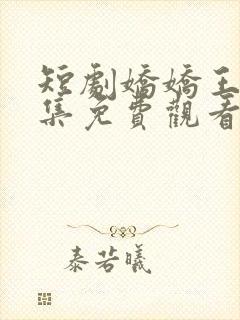 短劇嬌嬌王
集免費觀看
泰若曦